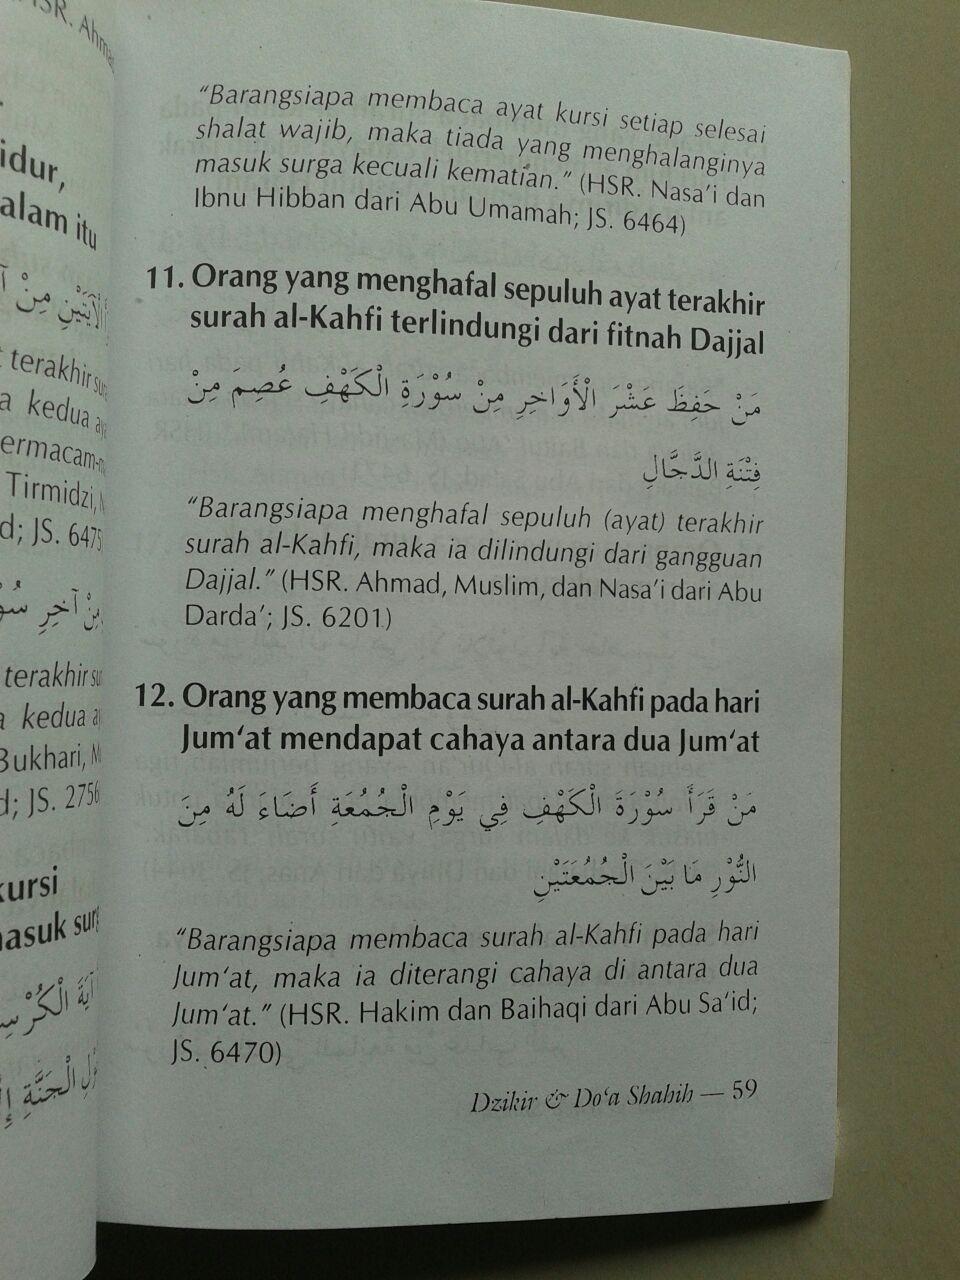 HSR. Ahmad
idur,
alam itu
الْآيَتَيْنِ مِنْ آ
terakhir su
a kedua ay
ermacam-m
Tirmidzi,
d; JS. 6475
مِنْ آخِرِ سُوْ
terakhir su
a kedua a
Bukhari, M
d; JS. 2756
kursi
masuk surg
آيَةَ الْكُرْسِ
الْجَنَّةِ إِ
“Barangsiapa membaca ayat kursi setiap selesai
shalat wajib, maka tiada yang menghalanginya
masuk surga kecuali kematian.” (HSR. Nasa‘i dan
Ibnu Hibban dari Abu Umamah; JS. 6464)
11. Orang yang menghafal sepuluh ayat terakhir
surah al-Kahfi terlindungi dari fitnah Dajjal
مَنْ حَفِظَ عَشْرَ الْأَوَاخِرِ مِنْ سُوْرَةِ الْكَهْفِ عُصِمَ مِنْ
فِتْنَةِ الدَّجَّالِ
“Barangsiapa menghafal sepuluh (ayat) terakhir
surah al-Kahfi, maka ia dilindungi dari gangguan
Dajjal.” (HSR. Ahmad, Muslim, dan Nasa‘i dari Abu
Darda’; JS. 6201)
12. Orang yang membaca surah al-Kahfi pada hari
Jum‘at mendapat cahaya antara dua Jum‘at
مَنْ قَرَأَ سُوْرَةَ الْكَهْفِ فِي يَوْمِ الْجُمُعَةِ أَضَاءَ لَهُ مِنَ
النُّوْرِ مَا بَيْنَ الْجُمُعَتَيْنِ
“Barangsiapa membaca surah al-Kahfi pada hari
Jum‘at, maka ia diterangi cahaya di antara dua
Jum‘at.” (HSR. Hakim dan Baihaqi dari Abu Sa‘id;
JS. 6470)
Dzikir & Do‘a Shahih — 59